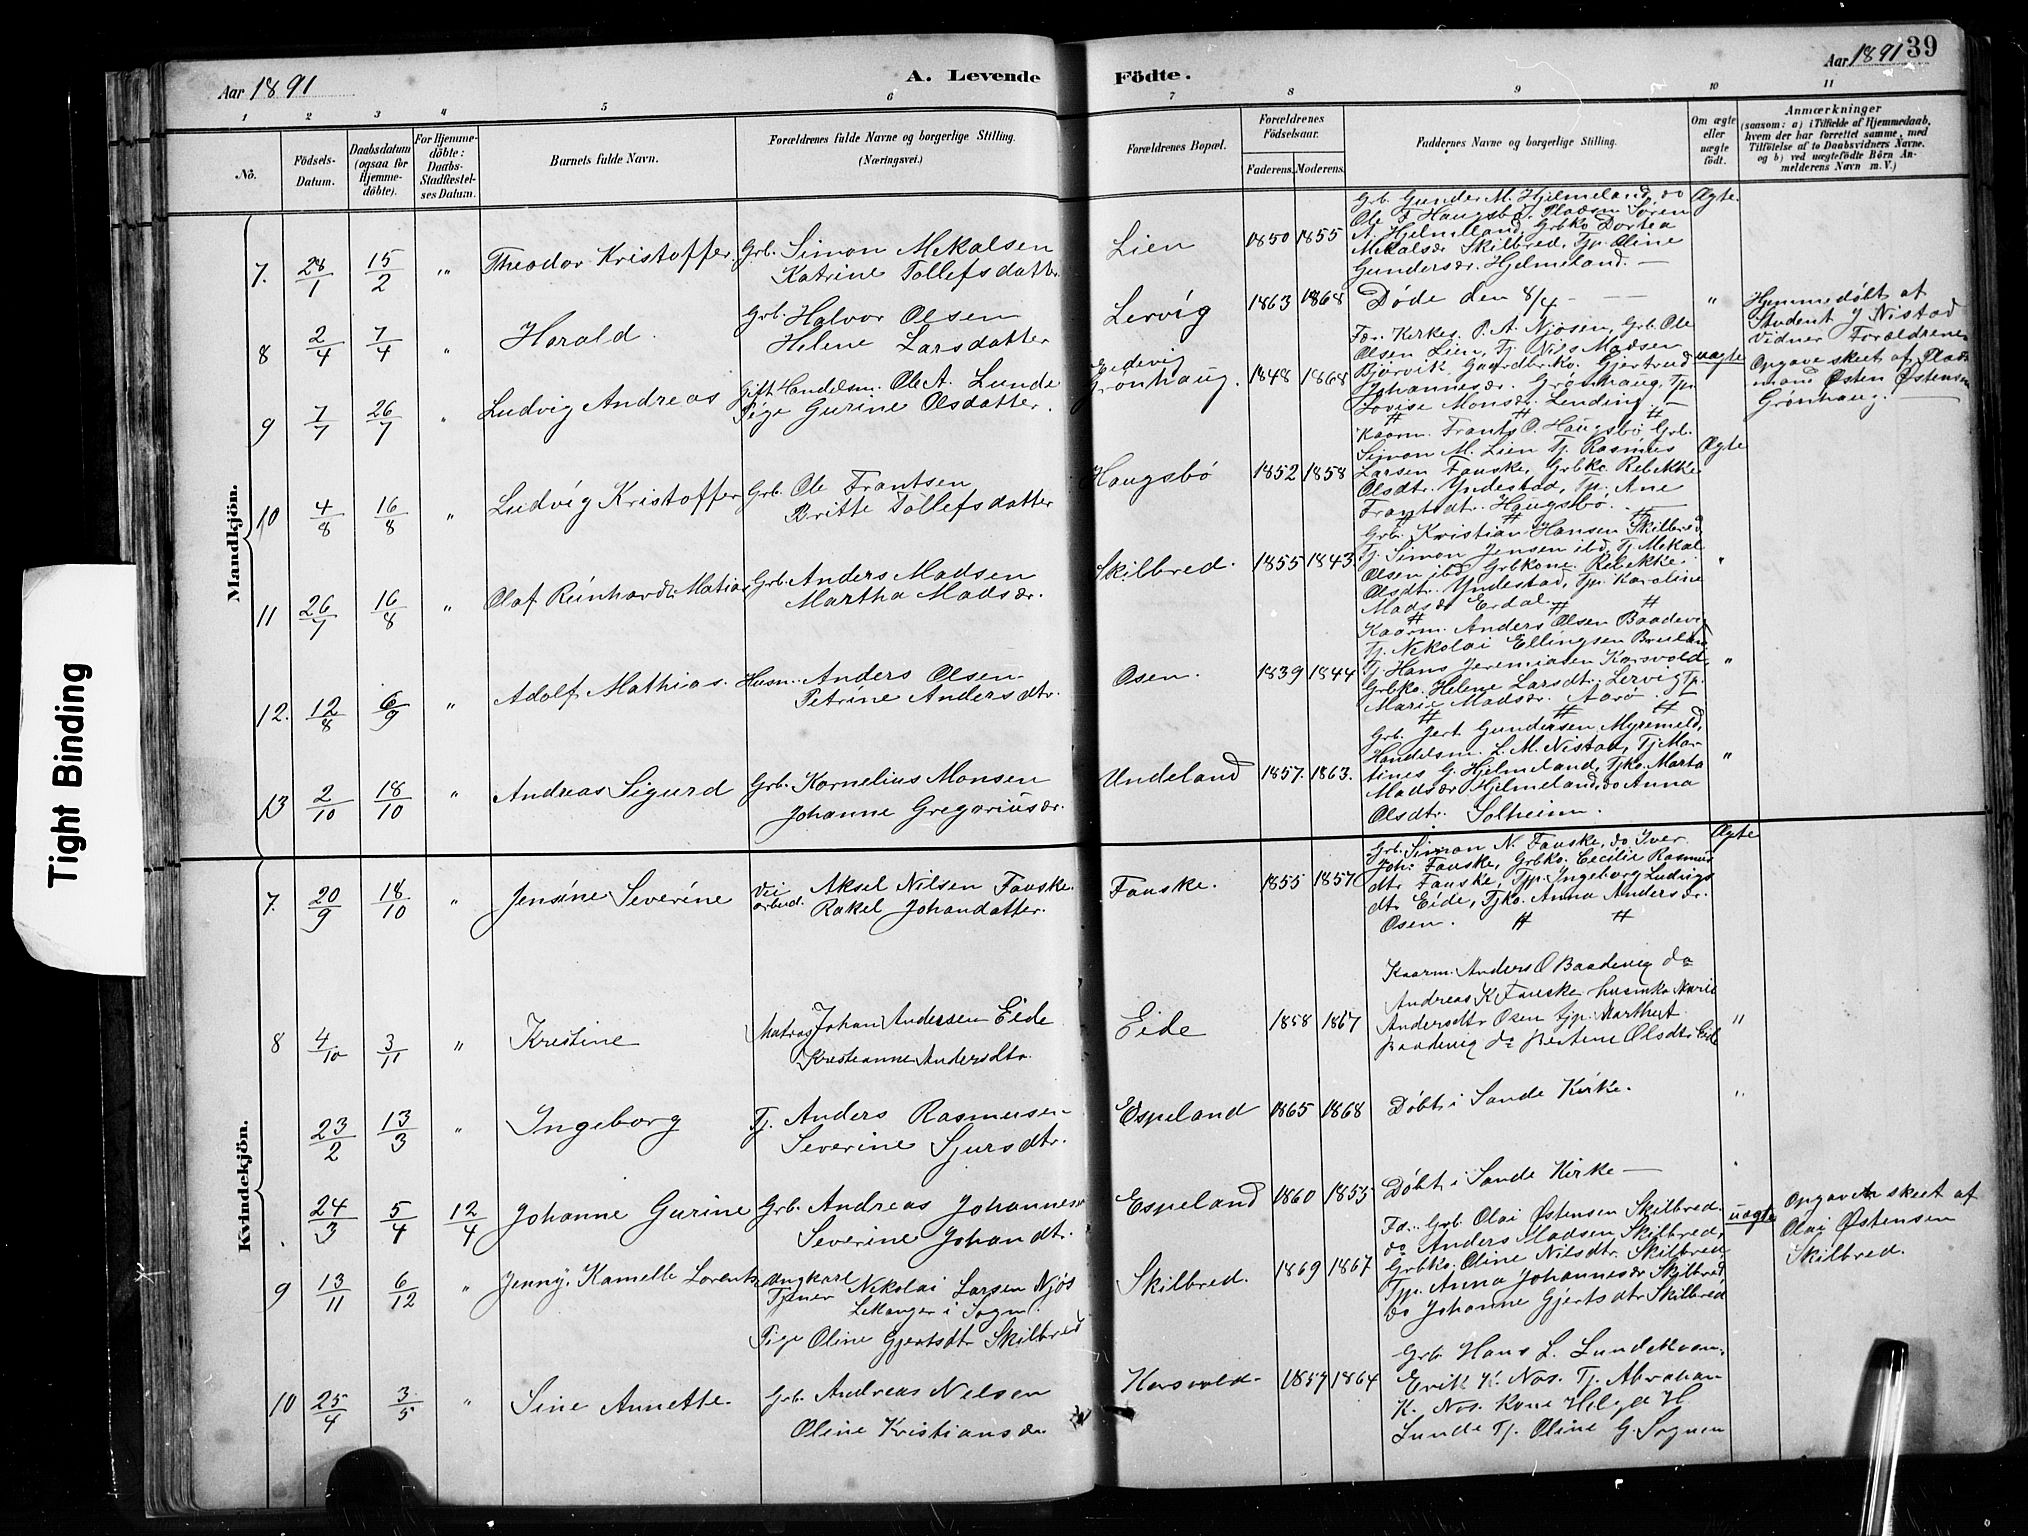 Aar 1891
A. Levende Födte.
Aar 1891 39
1 2 3 4 5 6 7 8 9 10 11
No.
Födsels-Datum.
Daabsdatum (ogsaa for Hjemmedöbte).
For Hjemmedöbte: Daabs-Stadfæstelses Datum.
Barnets fulde Navn.
Forældrenes fulde Navne og borgerlige Stilling. (Næringsvei.)
Forældrenes Bopæl.
Forældrenes Födselsaar.
Faderens. Moderens.
Faddernes Navne og borgerlige Stilling.
Om ægte eller uægte födt.
Anmærkninger
(saasom: a) i Tilfælde af Hjemmedaab,
hvem der har forrettet samme, med
Tilföielse af to Daabsvidners Navne.
og b) ved uægtefödte Börn Anmelderens Navn m. V.)
Mandkjön.
7. 28/1 15/2 " Theodor Kristoffer. Grb. Simon Mekalsen
Katrine Tollefsdatter
Lien 1850 1855
Grb. Gunder M. Hjelmeland, do
Ole F. Haugsbø. Pladsm. Søren
A. Hjelmeland, Grbko Dortea
Mekalsdr Skilbred, Tjp. Oline
Gundersdr. Hjelmeland. —
Ægte.
8 2/4 7/4 " Harald. Grb. Halvor Olsen
Helene Larsdatter
Lervig 1863 1868 Døde den 8/4 — "
Hjemmedøbt af
Student J Nistad
Vidner Forældrene
9 7/7 26/7 " Ludvig Andreas Gift Handelsm. Ole A. Lunde
Pige Gurine Olsdatter.
Eidevig
Grønhaug. 1848 1868
Fa. Kirkes. P. A. Njøsen, Grb. Ole
Olsen Lien, Tj. Nils Madsen
Bjørvik Gaardbrko. Gjertrud
Johannesdr. Grønhaug, Tjp.
Lovise Monsdr. Lending. —
uægte
Opgave skeet af Plads
mand Østen Østensen
Grønhaug.
10 4/8 16/8 " Ludvig Kristoffer Grb. Ole Frantsen
Britte Tollefsdatter
Haugsbø 1852 1858
Kaarm. Frants O. Haugsbø Grb.
Simon M. Lien Tj. Rasmus
Larsen Fauske, Grbko. Rebekke
Olsdtr. Yndestad, Tjp. Ane
Frantsdtr. Haugsbø.
Ægte
11 26/7 16/8 " Olaf Reinhardt Matias Grb. Anders Madsen
Martha Madsdr.
Skilbred. 1855 1843.
Grb. Kristian Hansen Skilbred
Tj. Simon Jensen ibd, Tj. Mekal
Olsen ibd Grbkone Rebekke
Olsdtr. Yndestad, Tjp. Karoline
Madsdr Erdal. "
12. 12/8 6/9 " Adolf Mathias. Husm. Anders Olsen
Petrine Andersdtr.
Osen. 1839 1844
Kaarm. Anders Olsen Baadevig
Tj. Nikolai Ellingsen Breiland
Tj. Hans Jeremiasen Korsvold,
Grbko. Helene Larsdtr. Lervig Tjp.
Marie Madsdr. Aarø. "
13 2/10 18/10 " Andreas Sigurd Grb. Kornelius Monsen
Johanne Gregoriusdr.
Undeland 1857. 1863.
Grb. Gert Gundersen Myrmeld,
Handelsm. L. M. Nistad, Tj Martines
G. Hjelmeland, Tjko. Marta
Madsdr Hjelmeland, do Anna
Olsdtr. Solheim. "
Kvindekjön.
7. 20/9 18/10 " Jensine Severine Vei
arbeid. Aksel Nilsen Fauske.
Rakel Johandatter.
Fauske. 1855 1857
Grb. Simon N. Fauske, do Iver
Joh: Fauske, Grbko. Cecilie Rasmus
dtr Fauske, Tjp. Ingeborg Ludvigs
dtr Eide, Tjko. Anna Andersdr.
Osen.
Ægte
8 4/10 3/11 " Kristine Matros Johan Andersen Eide
Kristianne Andersdtr.
Eide 1858 1867
Kaarm. Anders O Baadevig do
Andreas K Fauske husmko Marie
Andersdtr Osen tjp. Marthe A
Baadevig do Pertine Olsdtr Eide "
23/2 13/3 " Ingeborg Tj. Anders Rasmusen
Severine Sjursdtr.
Espeland 1865 1868 Døbt i Sande Kirke. "
24/3 5/4 12/4 Johanne Gurine Grb. Andreas Johannesen
Severine Johandtr.
Espeland 1860 1855 Døbt i Sande Kirke — "
9 13/11 6/12 " Jenny Kamelle Lorentse Ungkarl
Tjener Nikolai Larsen Njøs
Lekanger i Sogn.
Pige Oline Gjertsdtr Skilbred
Skilbred. 1869 1867
Fa. Grb Olai Østensen Skilbred.
do Anders Madsen Skilbred,
Grbko. Oline Nilsdtr. Skilbred
Tjp. Anna Johannesdr Skilbred,
Do Johanne Gjertsdtr Skilbred
uægte
Opgaven skeet af
Olai Østensen
Skilbred.
10 25/4 3/5 " Sine Annette Grb. Andreas Nilsen
Oline Kristiansdr
Korsvold 1857 1864
Grb Hans L. Lundekvam,
Erik K. Nos. Tj. Abraham
K. Nos. Kone Helga H
Lunde Tj. Oline G. Sognen
Tight Binding